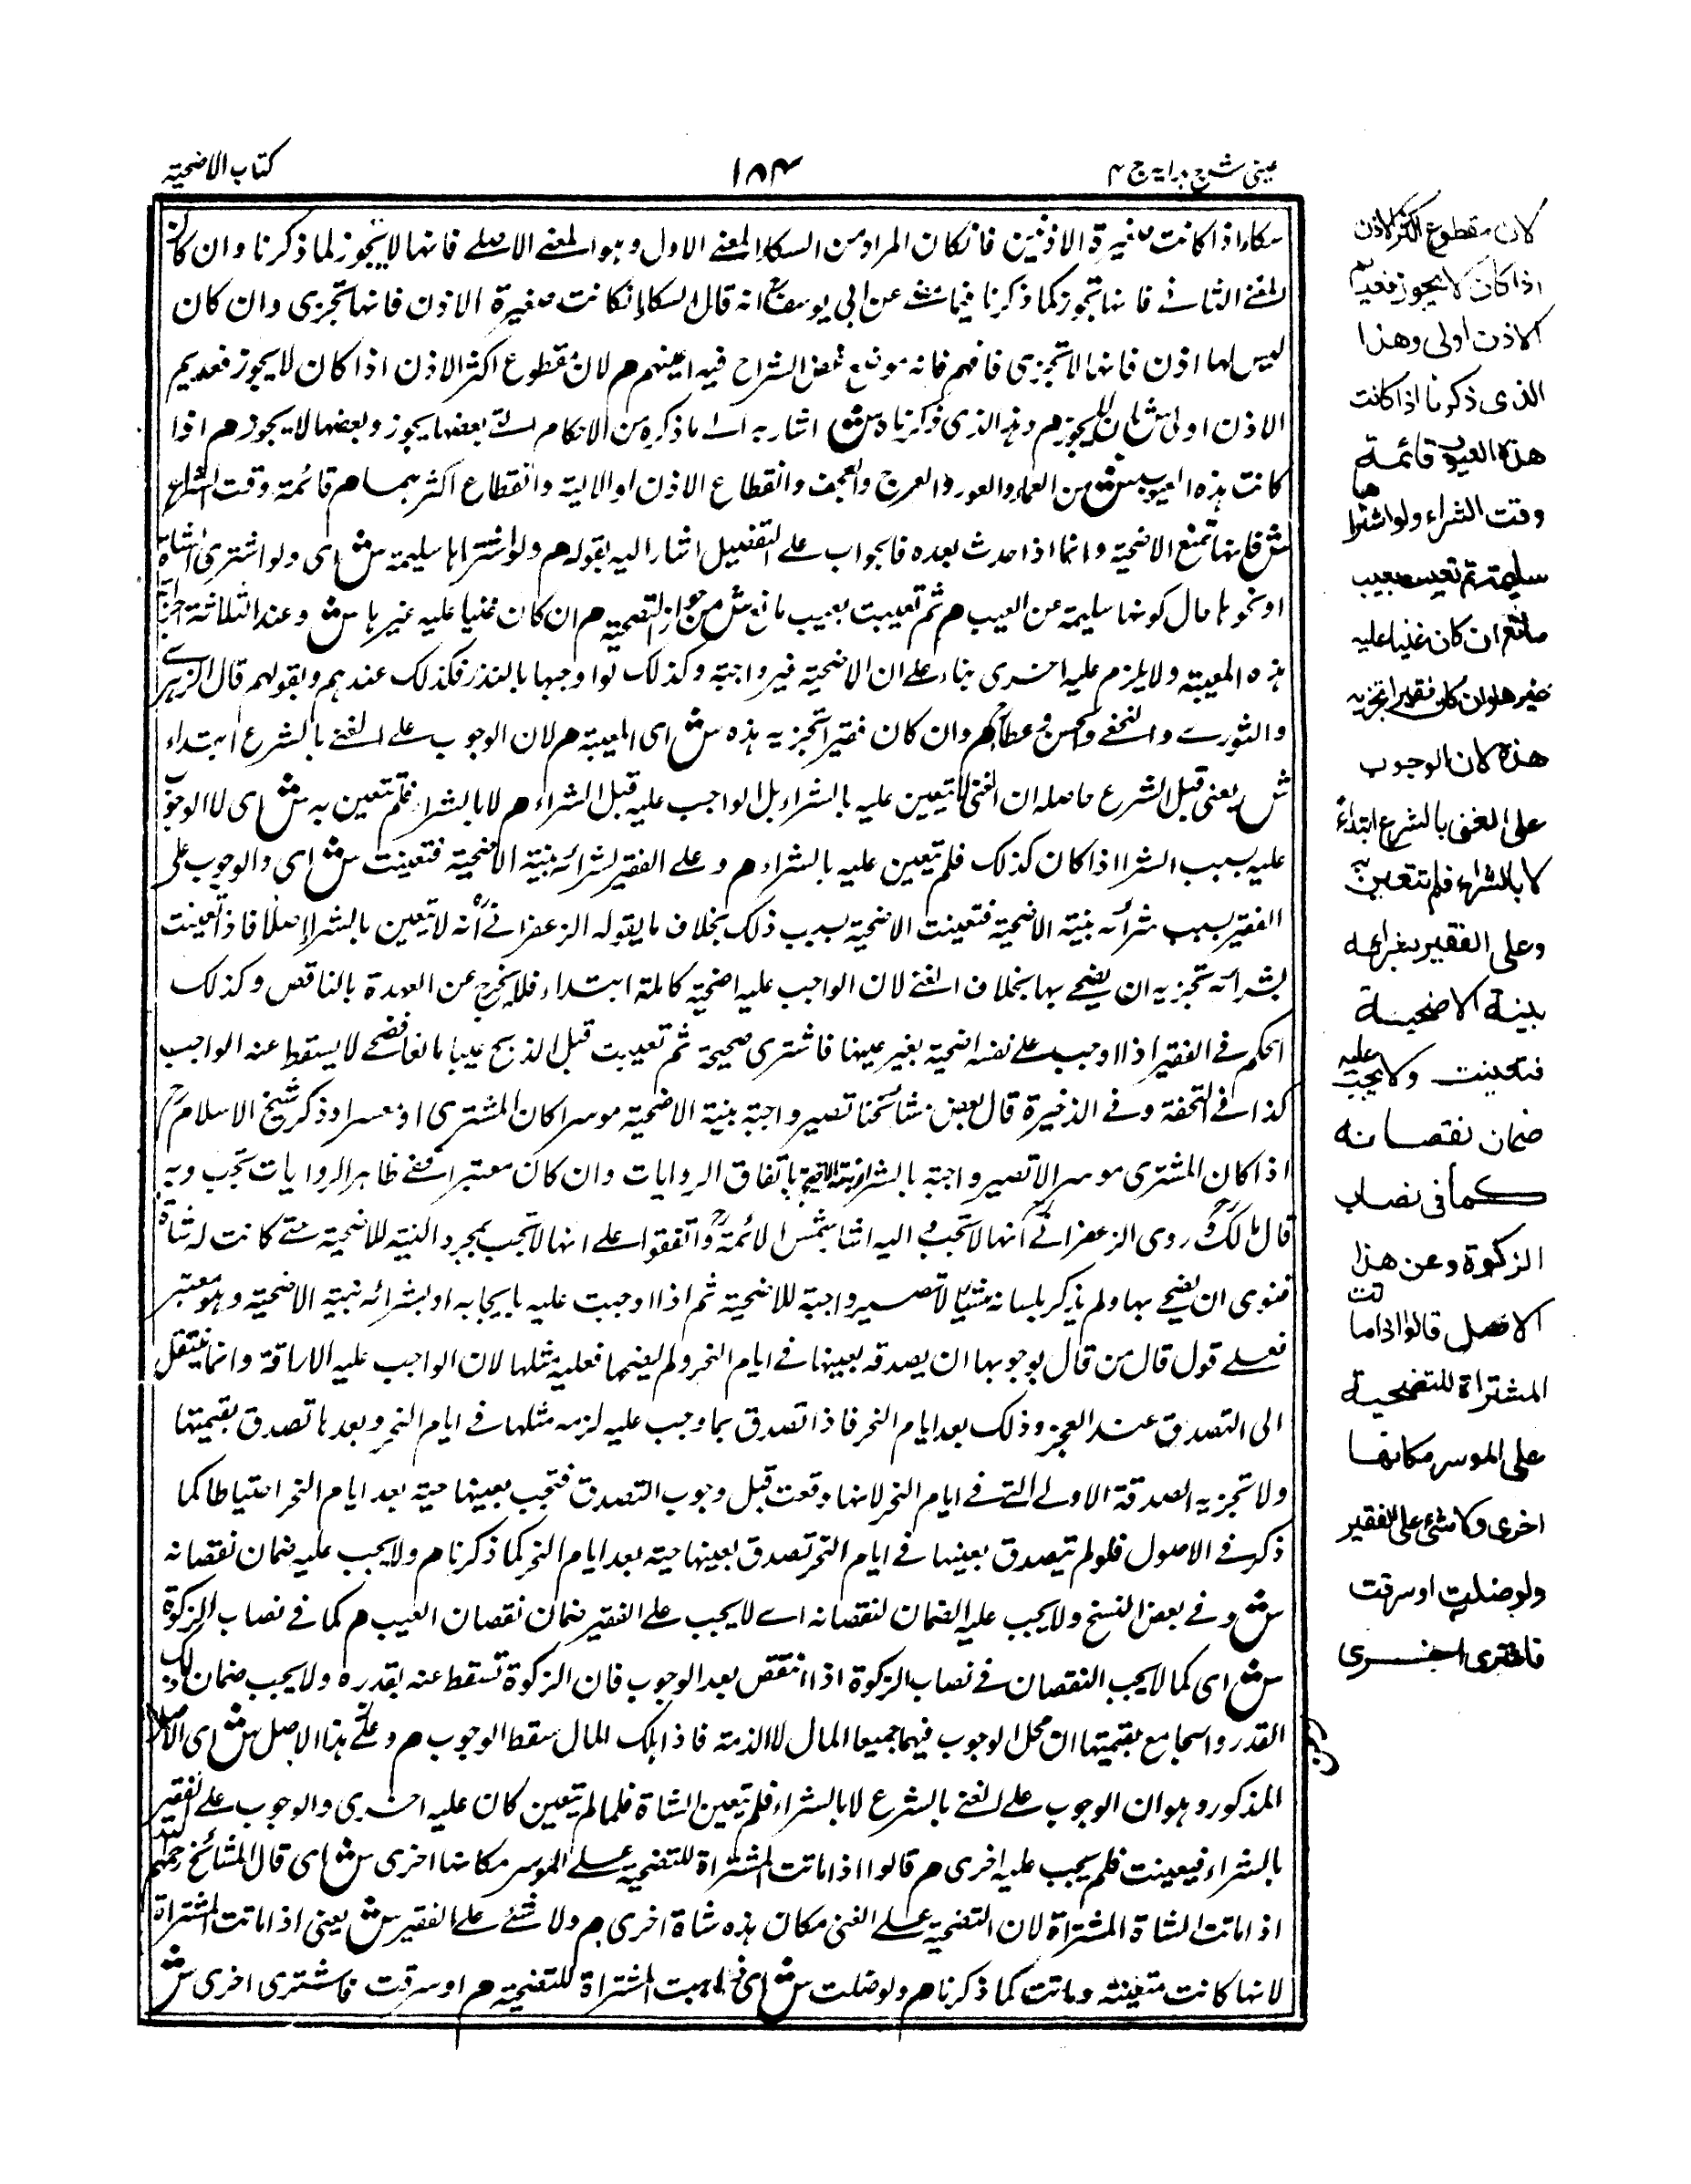 عینی شرح ہدایہ ج ۴
۱۸۴
کتاب الاضحیۃ
سکاء اذا کانت صغیرۃ الاذنین فانکان المراد من السکاء المعنے الاول وہو المعنے الاصلے فانہا لا یجوز لما ذکرنا وان کان
المعنے الثانے فانہا تجوز کما ذکرنا فیما عن ابی یوسف انہ قال السکاء انکانت صغیرۃ الاذن فانہا تجزی وان کان
لیس لہا اذن فانہا لا تجزی فافہم فانہ موضع غمض الشراح فیہ اعینہم م لان مقطوع اکثر الاذن اذا کان لا یجوز فعدیم
الاذن اولی ش بان لا یجوز م وہذا الذی ذکرناہ ش اشار بہ الے ما ذکرہ من الاحکام التے بعضہا یجوز وبعضہا لا یجوز م اذا
کانت ہذہ العیوب ش من العماء والعور والعرج والعجف وانقطاع الاذن او الالیۃ وانقطاع اکثرہما م قائمۃ وقت الشراء
ش فانہا تمنع الاضحیۃ وانما اذا حدث بعدہ فالجواب علے التفصیل اشار الیہ بقولہ م ولو اشتراہا سلیمۃ ش ای ولو اشتری الشاۃ
او نحوہا حال کونہا سلیمۃ عن العیب م ثم تعیبت بعیب مانع ش من جواز التضحیۃ م ان کان غنیا علیہ غیرہا ش وعند الثلاثۃ
ہذہ المعیبۃ ولا یلزم علیہ اخری بناء علے ان الاضحیۃ غیر واجبۃ وکذلک لو اوجبہا بالنذر فکذلک عندہم وبقولہم قال الزہری
والثوری والنخعے والحسن وعطاء م وان کان فقیرا تجزیہ ہذہ ش ای المعیبۃ م لان الوجوب علے الغنے بالشرع ابتداء
ش یعنی قبل الشرع حاصلہ ان الغنی لا یتعین علیہ بالشراء بل الواجب علیہ قبل الشراء م لا بالشراء فلم تتعین بہ ش ای لا الوجوب
علیہ بسبب الشراء اذا کان کذلک فلم یتعین علیہ بالشراء م وعلے الفقیر لشرائہ بنیۃ الاضحیۃ فتعینت ش ای والوجوب علی
الفقیر بسبب شرائہ بنیۃ الاضحیۃ فتعینت الاضحیۃ بسبب ذلک بخلاف ما یقولہ الزعفرانے انہ لا یتعین بالشراء اصلا فاذا تعینت
بشرائہ تجزیہ ان یضحے بہا بخلاف الغنے لان الواجب علیہ اضحیۃ کاملۃ ابتداء فلا یخرج عن العہدۃ بالناقص وکذلک
الحکم فے الفقیر اذا اوجب علے نفسہ اضحیۃ بغیر عینہا فاشتری صحیحۃ ثم تعیبت قبل الذبح عیبا مانعا فضحے لا یسقط عنہ الواجب
کذا فے التحفۃ وفے الذخیرۃ قال بعض مشائخنا تصیر واجبۃ بنیۃ الاضحیۃ موسرا کان المشتری او معسرا وذکر شیخ الاسلام
اذا کان المشتری موسرا لا تصیر واجبۃ بالشراء بنیۃ الاضحیۃ باتفاق الروایات وان کان معتبرا ففے ظاہر الروایات تجب وبہ
قال مالک وروی الزعفرانے انہا لا تجب والیہ اشار شمس الائمۃ واتفقوا علے انہا لا تجب بمجرد النیۃ للاضحیۃ حتے کانت لہ شاۃ
فنوی ان یضحے بہا ولم یذکر بلسانہ شیئا لا تصیر واجبۃ للاضحیۃ ثم اذا اوجبت علیہ بایجابہ او بشرائہ بنیۃ الاضحیۃ وہو معتبر
فعلے قول قال من قال بوجوبہا ان یصدقہ بعینہا فے ایام النحر ولم یضحہا فعلیہ مثلہا لان الواجب علیہ الاراقۃ وانما ینتقل
الی التصدق عند العجز وذلک بعد ایام النحر فاذا تصدق بما وجب علیہ لزمہ مثلہا فے ایام النحر وبعدہا تصدق بقیمتہا
ولا تجزیہ الصدقۃ الاولے التے فے ایام النحر لانہا وقعت قبل وجوب التصدق فتجب بعینہا حیۃ بعد ایام النحر احتیاطا کما
ذکر فے الاصول فلو لم یتصدق بعینہا فے ایام النحر تصدق بعینہا حیۃ بعد ایام النحر کما ذکرنا م ولا یجب علیہ ضمان نقصانہ
ش وفے بعض النسخ ولا یجب علیہ الضمان لنقصانہ اے لا یجب علے الفقیر ضمان نقصان العیب م کما فے نصاب الزکوۃ
ش ای کما لا یجب النقصان فے نصاب الزکوۃ اذا انتقص بعد الوجوب فان الزکوۃ تسقط عنہ بقدرہ ولا یجب ضمان ذلک
القدر والجامع بقیمتہا ان محل الوجوب فیہما جمیعا المال لا الذمۃ فاذا ہلک المال سقط الوجوب م وعلے ہذا الاصل ش ای الاصل
المذکور وہو ان الوجوب علے الغنے بالشرع لا بالشراء فلم تتعین الشاۃ فلما لم یتعین کان علیہ اخری والوجوب علے الفقیر
بالشراء فیعینت فلم یجب علیہ اخری م قالوا اذا ماتت المشتراۃ للتضحیۃ علے الموسر مکانہا اخری ش ای قال المشائخ رحمہم
اذا ماتت الشاۃ المشتراۃ لان التضحیۃ علے الغنی مکان ہذہ شاۃ اخری م ولا شئے علے الفقیر ش یعنی اذا ماتت المشتراۃ
لانہا کانت متعینۃ وماتت کما ذکرنا م ولو ضلت ش ای المشتراۃ للتضحیۃ م او سرقت فاشتری اخری ش
لان مقطوع اکثر الاذن
اذا کان لا یجوز فعدیم
الاذن اولی وهذا
الذی ذکرنا اذا کانت
هذه العیوب قائمة
وقت الشراء ولو اشتراها
سلیمة ثم تعیبت بعیب
مانع ان کان غنیا علیه
غیرها وان کان فقیرا تجزیه
هذه لان الوجوب
علی الغنی بالشرع ابتداءً
لا بالشراء فلم تتعین به
وعلی الفقیر بشرائه
بنیة الاضحیة
فتعینت ولا یجب علیه
ضمان نقصانه
کما فی نصاب
الزکوة وعن هذا
الاصل قالوا اذا ماتت
المشتراة للتضحیة
علی الموسر مکانها
اخری ولا شئ علی الفقیر
ولو ضلت او سرقت
فاشتری اخری